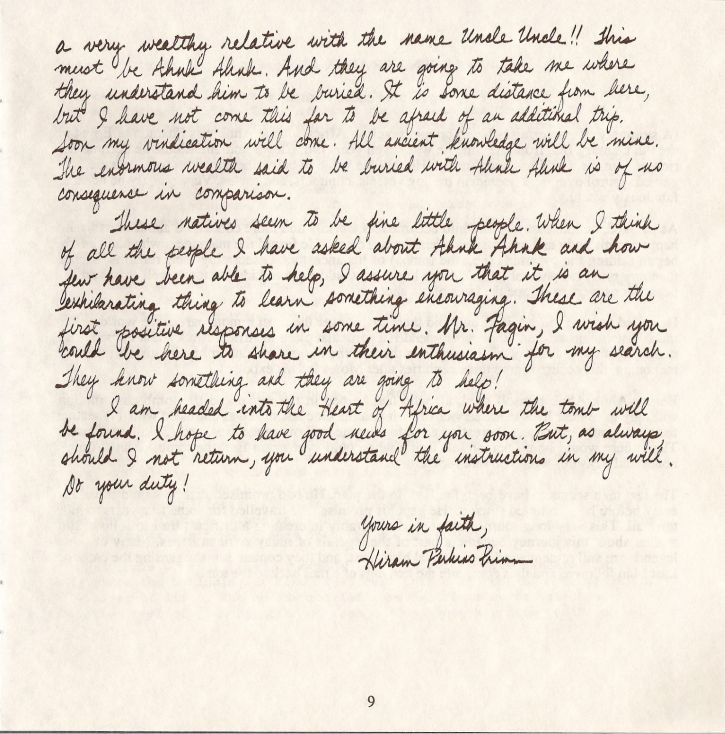 a very wealthy relative with the name Uncle Uncle!! This
must be Ahnk Ahnk. And they are going to take me where
they understand him to be buried. It is some distance from here,
but I have not come this far to be afraid of an additional trip.
Soon my vindication will come. All ancient knowledge will be mine.
The enormous wealth said to be buried with Ahnk Ahnk is of no
consequence in comparison.
These natives seem to be fine little people. When I think
of all the people I have asked about Ahnk Ahnk and how
few have been able to help, I assure you that it is an
exhilarating thing to learn something encouraging. These are the
first positive responses in some time. Mr. Fagin, I wish you
could be here to share in their enthusiasm for my search.
They know something and they are going to help!
I am headed into the Heart of Africa where the tomb will
be found. I hope to have good news for you soon. But, as always,
should I not return, you understand the instructions in my will.
Do your duty!
Yours in faith,
Hiram Perkins Primm
9